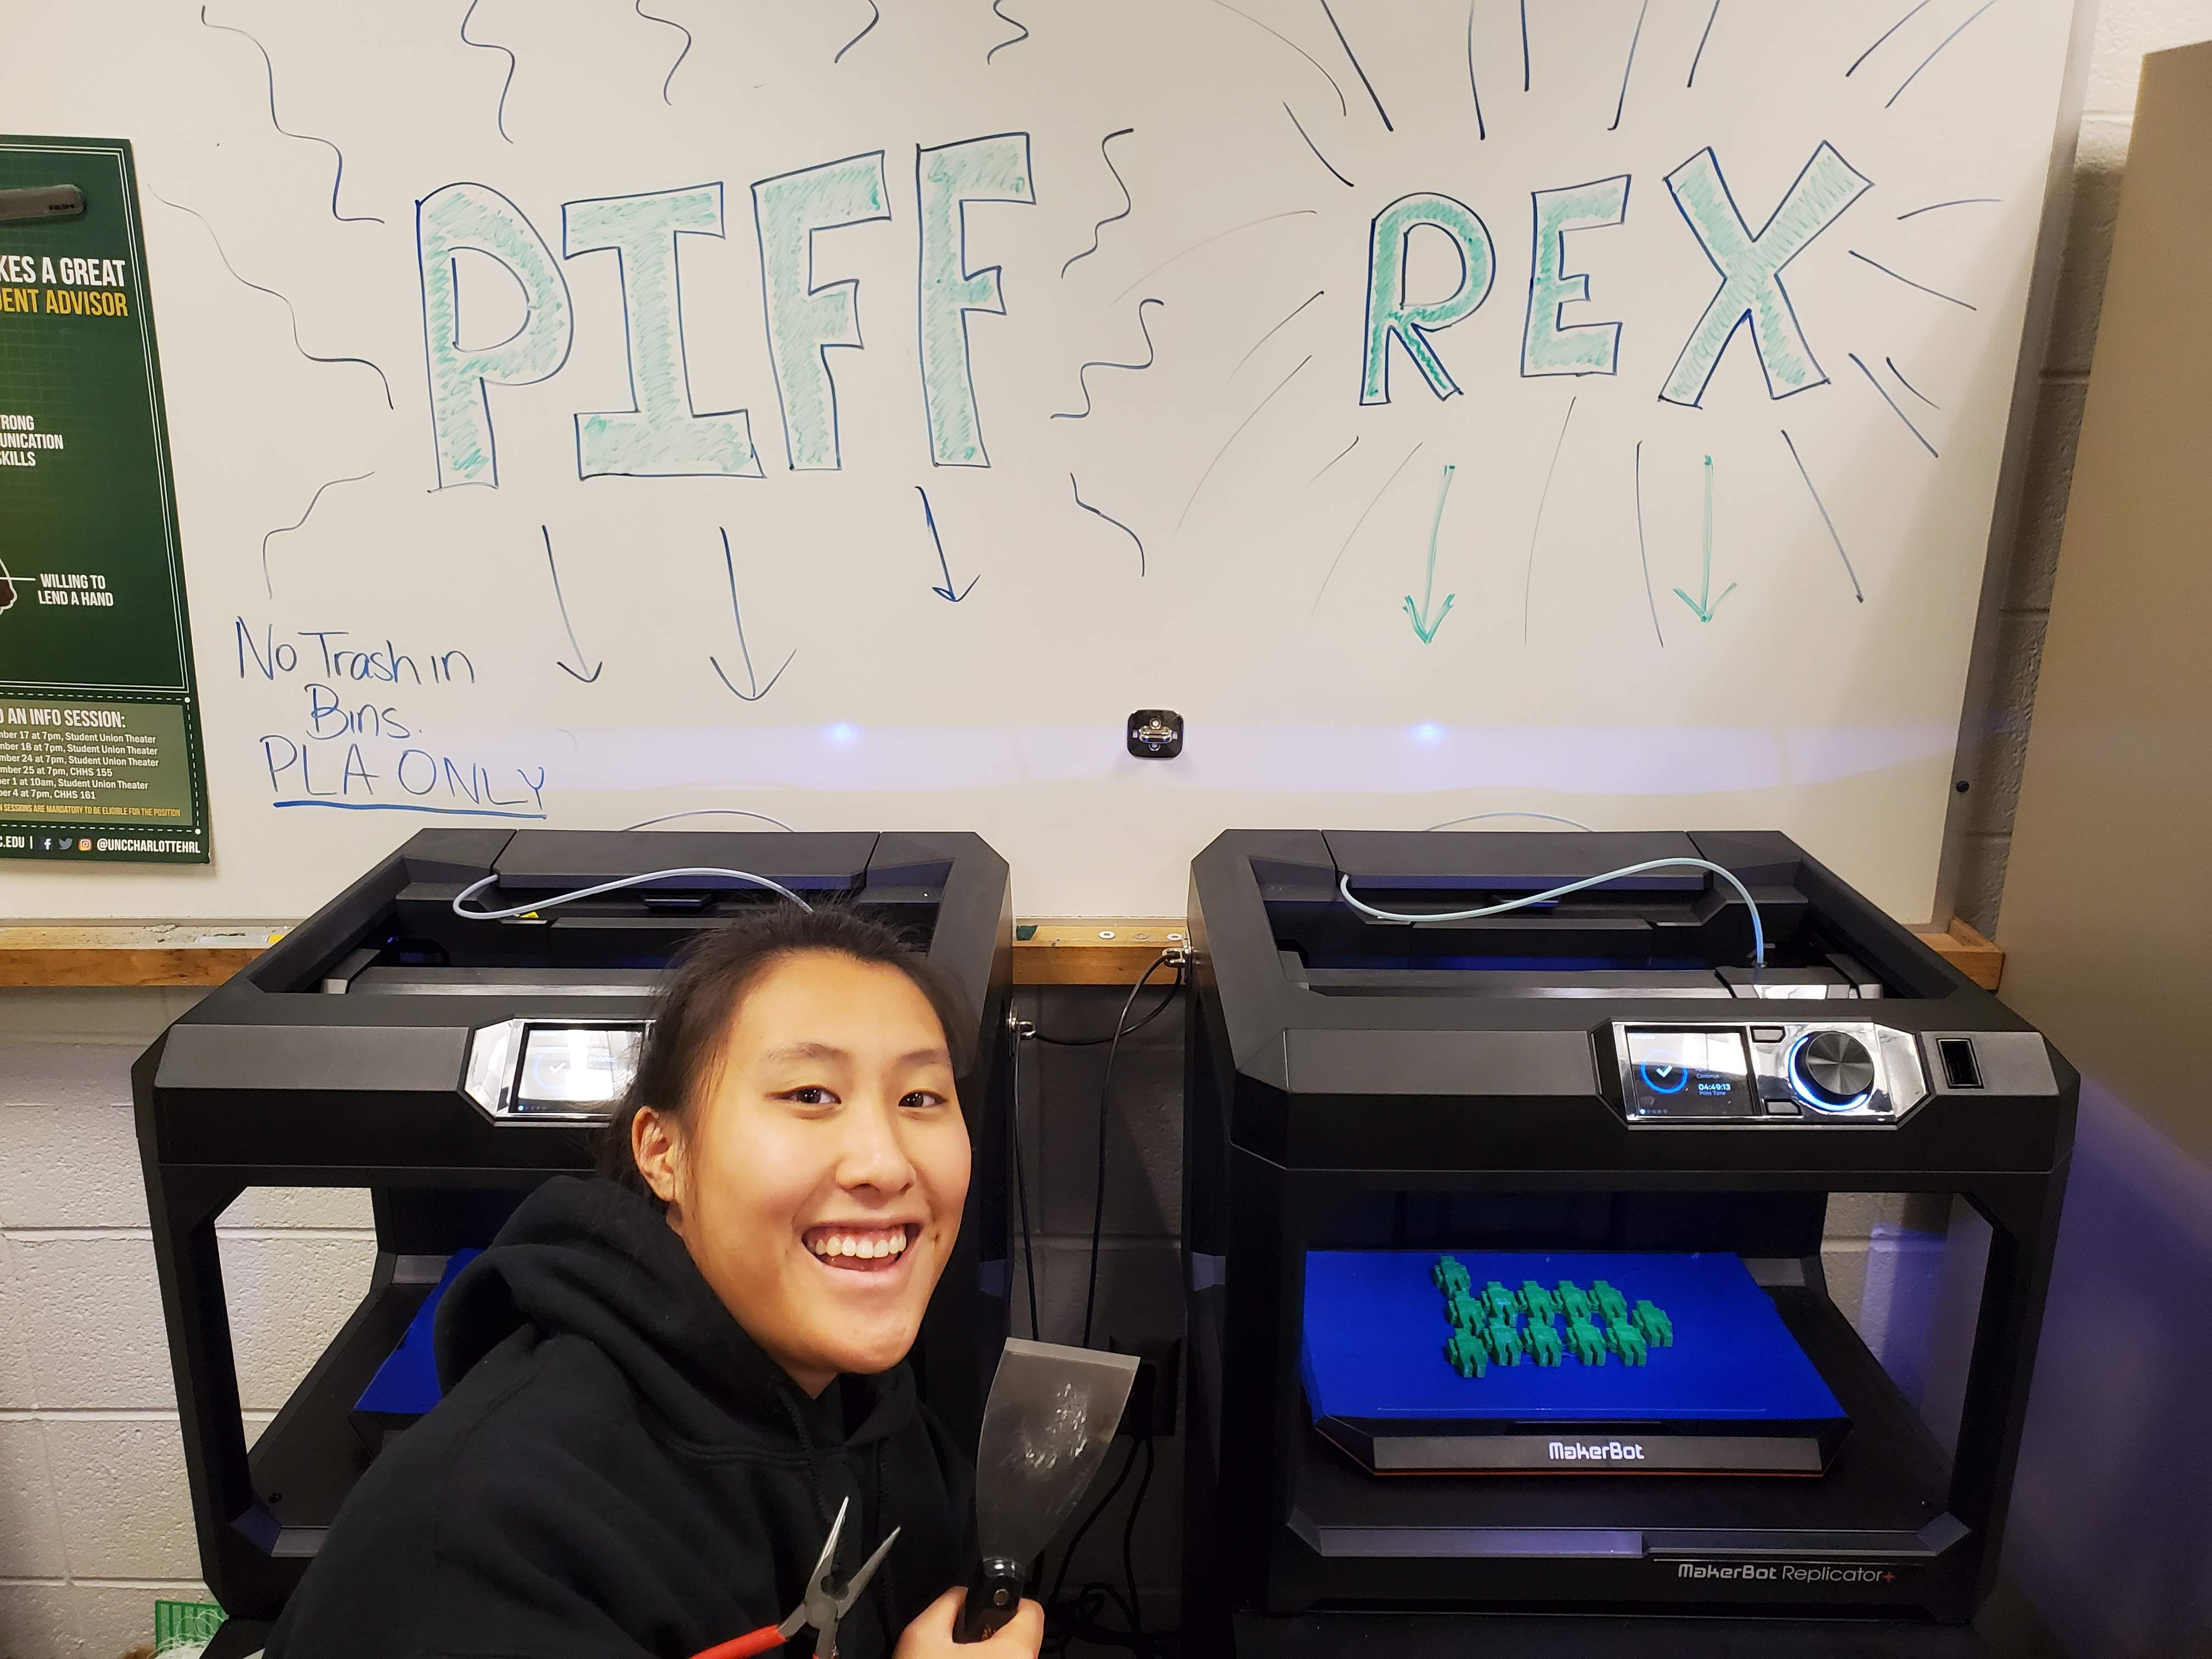 PIFF
REX
KES A GREAT
ENT ADVISOR
RONG
UNICATION
SKILLS
WILLING TO
LEND A HAND
No Trash in
Bins.
PLA ONLY
AN INFO SESSION:
mber 17 at 7pm, Student Union Theater
mber 18 at 7pm, Student Union Theater
mber 24 at 7pm, Student Union Theater
mber 25 at 7pm, CHHS 155
er 1 at 10am, Student Union Theater
er 4 at 7pm, CHHS 161
SESSIONS ARE MANDATORY TO BE ELIGIBLE FOR THE POSITION
C.EDU | @UNCCHARLOTTEHRL
04:49:13
Print Time
MakerBot
MakerBot Replicator+